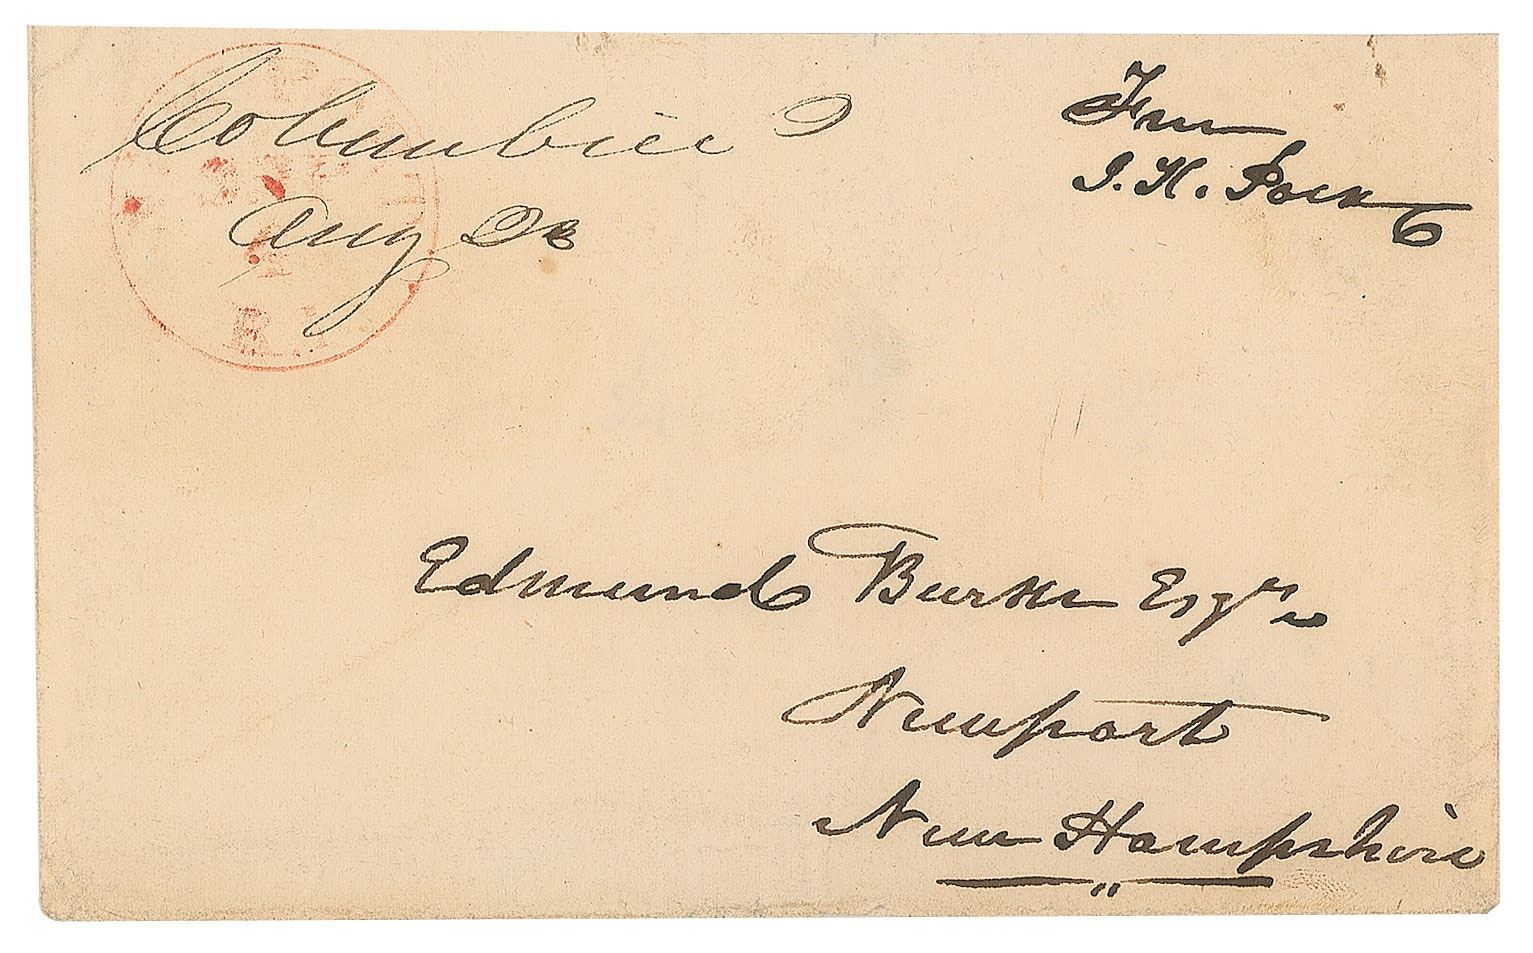 Columbia
Aug 28
Free
J. K. Polk
R.I
Edmund Burke Esqr
Newport
New Hampshire